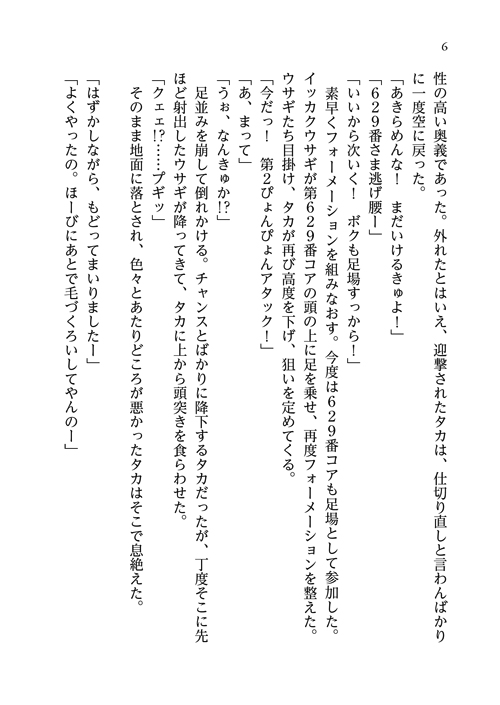 6
性の高い奥義であった。外れたとはいえ、迎撃されたタカは、仕切り直しと言わんばかり
に一度空に戻った。
「あきらめんな！　まだいけるきゅよ！」
「６２９番さま逃げ腰ー」
「いいから次いく！　ボクも足場すっから！」
　素早くフォーメーションを組みなおす。今度は６２９番コアも足場として参加した。
イッカクウサギが第６２９番コアの頭の上に足を乗せ、再度フォーメーションを整えた。
ウサギたち目掛け、タカが再び高度を下げ、狙いを定めてくる。
「今だっ！　第２ぴょんぴょんアタック！」
「あ、まって」
「うぉ、なんきゅか!?」
　足並みを崩して倒れかける。チャンスとばかりに降下するタカだったが、丁度そこに先
ほど射出したウサギが降ってきて、タカに上から頭突きを食らわせた。
「クェェ!?……プギッ」
　そのまま地面に落とされ、色々とあたりどころが悪かったタカはそこで息絶えた。
「はずかしながら、もどってまいりましたー」
「よくやったの。ほーびにあとで毛づくろいしてやんのー」